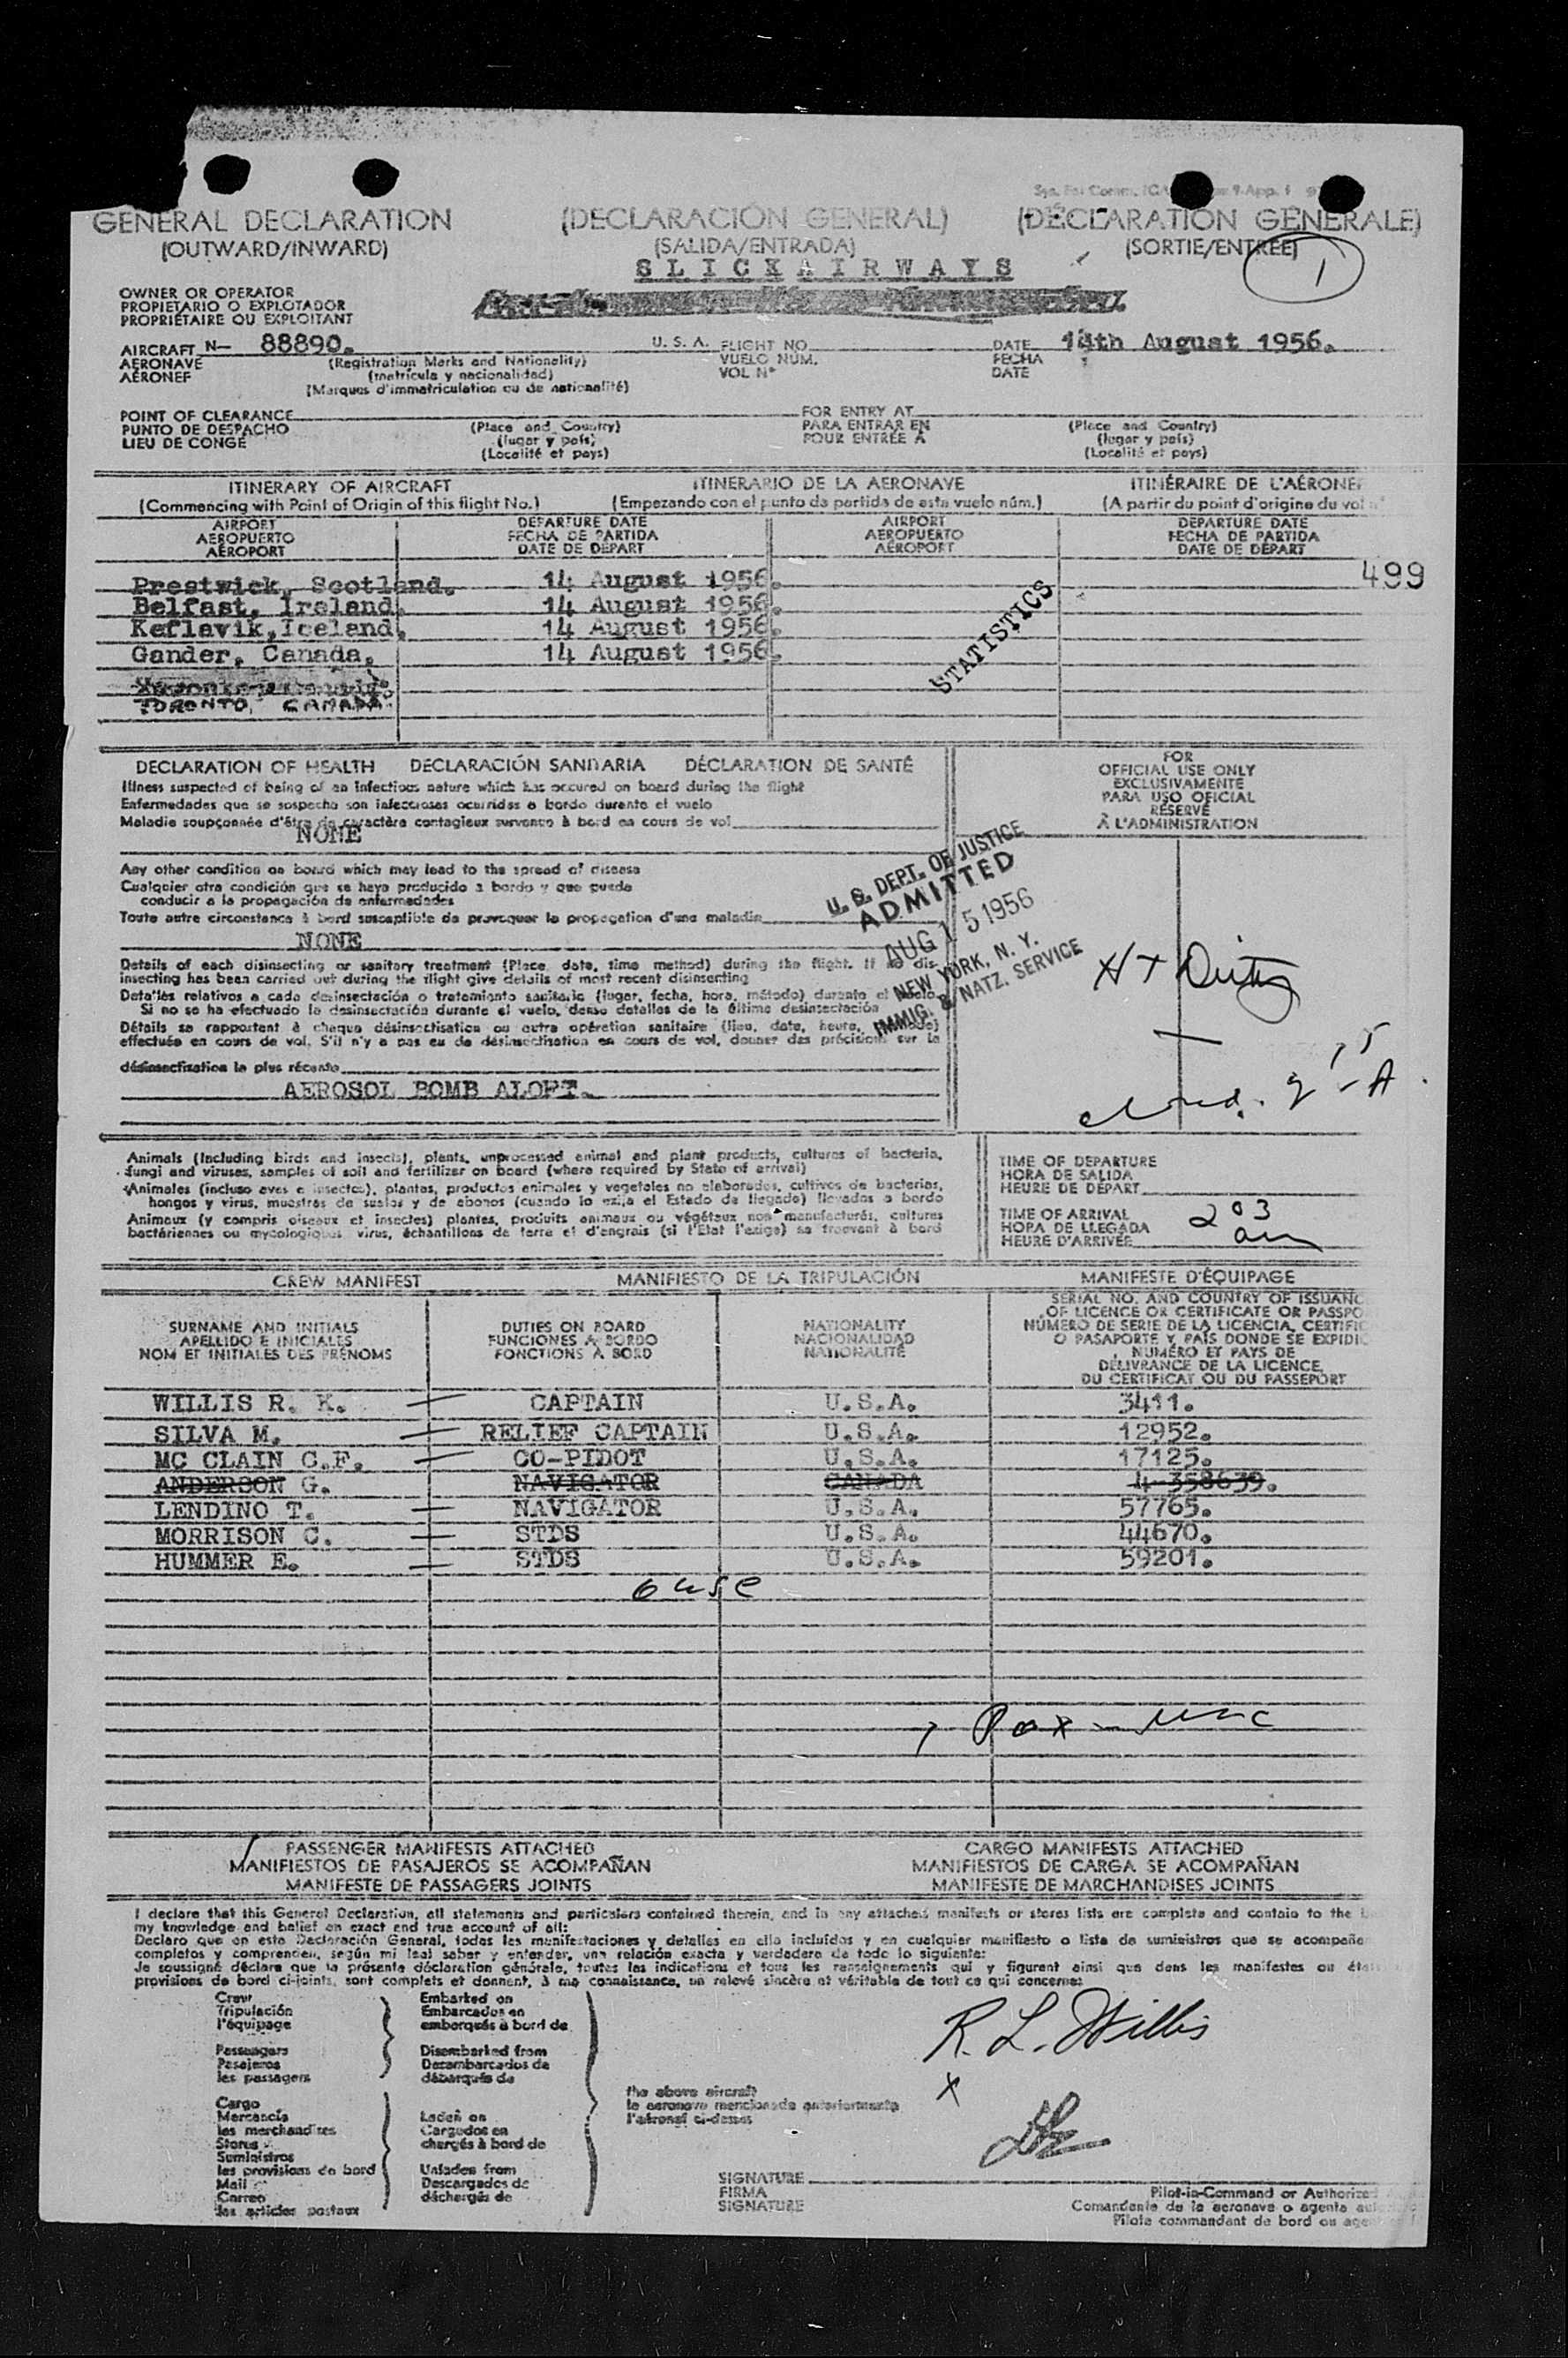 GENERAL DECLARATION (DECLARACIÓN GENERAL) (DÉCLARATION GÉNÉRALE)
(OUTWARD/INWARD) (SALIDA/ENTRADA) (SORTIE/ENTRÉE)
1
SLICK AIRWAYS
OWNER OR OPERATOR
PROPIETARIO O EXPLOTADOR
PROPRIÉTAIRE OU EXPLOITANT
AIRCRAFT N- 88890. U. S. A. FLIGHT NO. DATE 14th August 1956.
AERONAVE (Registration Marks and Nationality) VUELO NÚM. FECHA
AÉRONEF (matrícula y nacionalidad) VOL Nº DATE
(Marques d'immatriculation ou de nationalité)
POINT OF CLEARANCE FOR ENTRY AT
PUNTO DE DESPACHO (Place and Country) PARA ENTRAR EN (Place and Country)
LIEU DE CONGÉ (lugar y país) POUR ENTRÉE À (lugar y país)
(Localité et pays) (Localité et pays)
ITINERARY OF AIRCRAFT ITINERARIO DE LA AERONAVE ITINÉRAIRE DE L'AÉRONEF
(Commencing with Point of Origin of this flight No.) (Empezando con el punto de partida de este vuelo núm.) (A partir du point d'origine du vol
AIRPORT DEPARTURE DATE AIRPORT DEPARTURE DATE
AEROPUERTO FECHA DE PARTIDA AEROPUERTO FECHA DE PARTIDA
AÉROPORT DATE DE DÉPART AÉROPORT DATE DE DÉPART
499
Prestwick, Scotland. 14 August 1956.
Belfast, Ireland. 14 August 1956.
Keflavik, Iceland. 14 August 1956.
Gander, Canada. 14 August 1956.
TORONTO, CANADA
STATISTICS
DECLARATION OF HEALTH DECLARACIÓN SANITARIA DÉCLARATION DE SANTÉ
Illness suspected of being of an infectious nature which has occured on board during the flight
Enfermedades que se sospecha son infecciosas ocurridas a bordo durante el vuelo
Maladie soupçonnée d'être de caractère contagieux survenue à bord en cours de vol
NONE
FOR
OFFICIAL USE ONLY
EXCLUSIVAMENTE
PARA USO OFICIAL
RÉSERVÉ
À L'ADMINISTRATION
Any other condition on board which may lead to the spread of disease
Cualquier otra condición que se haya producido a bordo y que pueda
conducir a la propagación de enfermedades
Toute autre circonstance à bord susceptible de provoquer la propagation d'une maladie
NONE
U. S. DEPT. OF JUSTICE
ADMITTED
AUG 15 1956
NEW YORK, N. Y.
IMMIG. & NATZ. SERVICE
Details of each disinsecting or sanitary treatment (Place, date, time method) during the flight. If no dis-
insecting has been carried out during the flight give details of most recent disinsecting
Detalles relativos a cada desinsectación o tratamiento sanitario (lugar, fecha, hora, método) durante el vuelo.
Si no se ha efectuado la desinsectación durante el vuelo, dense detalles de la última desinsectación
Détails se rapportant à chaque désinsectisation ou autre opération sanitaire (lieu, date, heure, méthode)
effectuée en cours de vol. S'il n'y a pas eu de désinsectisation en cours de vol, donner des précisions sur la
désinsectisation la plus récente
AEROSOL BOMB ALOFT.
Animals (Including birds and insects), plants, unprocessed animal and plant products, cultures of bacteria,
fungi and viruses, samples of soil and fertilizer on board (where required by State of arrival)
Animales (incluso aves e insectos), plantas, productos animales y vegetales no elaborados, cultivos de bacterias,
hongos y virus, muestras de suelos y de abonos (cuando lo exija el Estado de llegada) llevados a bordo
Animaux (y compris oiseaux et insectes) plantes, produits animaux ou végétaux non manufacturés, cultures
bactériennes ou mycologiques, virus, échantillons de terre et d'engrais (si l'Etat l'exige) se trouvant à bord
TIME OF DEPARTURE
HORA DE SALIDA
HEURE DE DÉPART
TIME OF ARRIVAL
HORA DE LLEGADA
HEURE D'ARRIVÉE
203
am
CREW MANIFEST MANIFIESTO DE LA TRIPULACIÓN MANIFESTE D'ÉQUIPAGE
SURNAME AND INITIALS DUTIES ON BOARD NATIONALITY
APELLIDO E INICIALES FUNCIONES A BORDO NACIONALIDAD
NOM ET INITIALES DES PRÉNOMS FONCTIONS À BORD NATIONALITÉ
SERIAL NO. AND COUNTRY OF ISSUANC
OF LICENCE OR CERTIFICATE OR PASSPO
NÚMERO DE SERIE DE LA LICENCIA, CERTIFIC
O PASAPORTE Y PAÍS DONDE SE EXPIDIÓ
NUMÉRO ET PAYS DE
DÉLIVRANCE DE LA LICENCE,
DU CERTIFICAT OU DU PASSEPORT
WILLIS R. K. CAPTAIN U.S.A. 3411.
SILVA M. RELIEF CAPTAIN U.S.A. 12952.
MC CLAIN C.F. CO-PIDOT U.S.A. 17125.
ANDERSON G. NAVIGATOR CANADA 4-358639.
LENDINO T. NAVIGATOR U.S.A. 57765.
MORRISON C. STDS U.S.A. 44670.
HUMMER E. STDS U.S.A. 59201.
6 usc
PASSENGER MANIFESTS ATTACHED CARGO MANIFESTS ATTACHED
MANIFIESTOS DE PASAJEROS SE ACOMPAÑAN MANIFIESTOS DE CARGA SE ACOMPAÑAN
MANIFESTE DE PASSAGERS JOINTS MANIFESTE DE MARCHANDISES JOINTS
I declare that this General Declaration, all statements and particulars contained therein, and in any attached manifests or stores lists are complete and contain to the
my knowledge and belief an exact and true account of all:
Declaro que en esta Declaración General, todas las manifestaciones y detalles en ella incluidos y en cualquier manifiesto o lista de suministros que se acompañe
completos y comprenden, según mi leal saber y entender, una relación exacta y verdadera de todo lo siguiente:
Je soussigné déclare que la présente déclaration générale, toutes les indications et tous les renseignements qui y figurent ainsi que dans les manifestes ou état
provisions de bord ci-joints, sont complets et donnent, à ma connaissance, un relevé sincère et véritable de tout ce qui concerne:
Crew Embarked on
Tripulación Embarcados en
l'équipage embarqués à bord de
Passengers Disembarked from
Pasajeros Desembarcados de
les passagers débarqués de
R. L. Willis
X
the above aircraft
la aeronave mencionada anteriormente
l'aéronef ci-dessus
Cargo
Mercancía Laden on
les merchandises Cargados en
Stores chargés à bord de
Suministros
les provisions de bord Unladen from
Mail Descargados de
Correo déchargés de
les articles postaux
SIGNATURE Pilot-in-Command or Authorized
FIRMA Comandante de la aeronave o agente
SIGNATURE Pilote commandant de bord ou agent